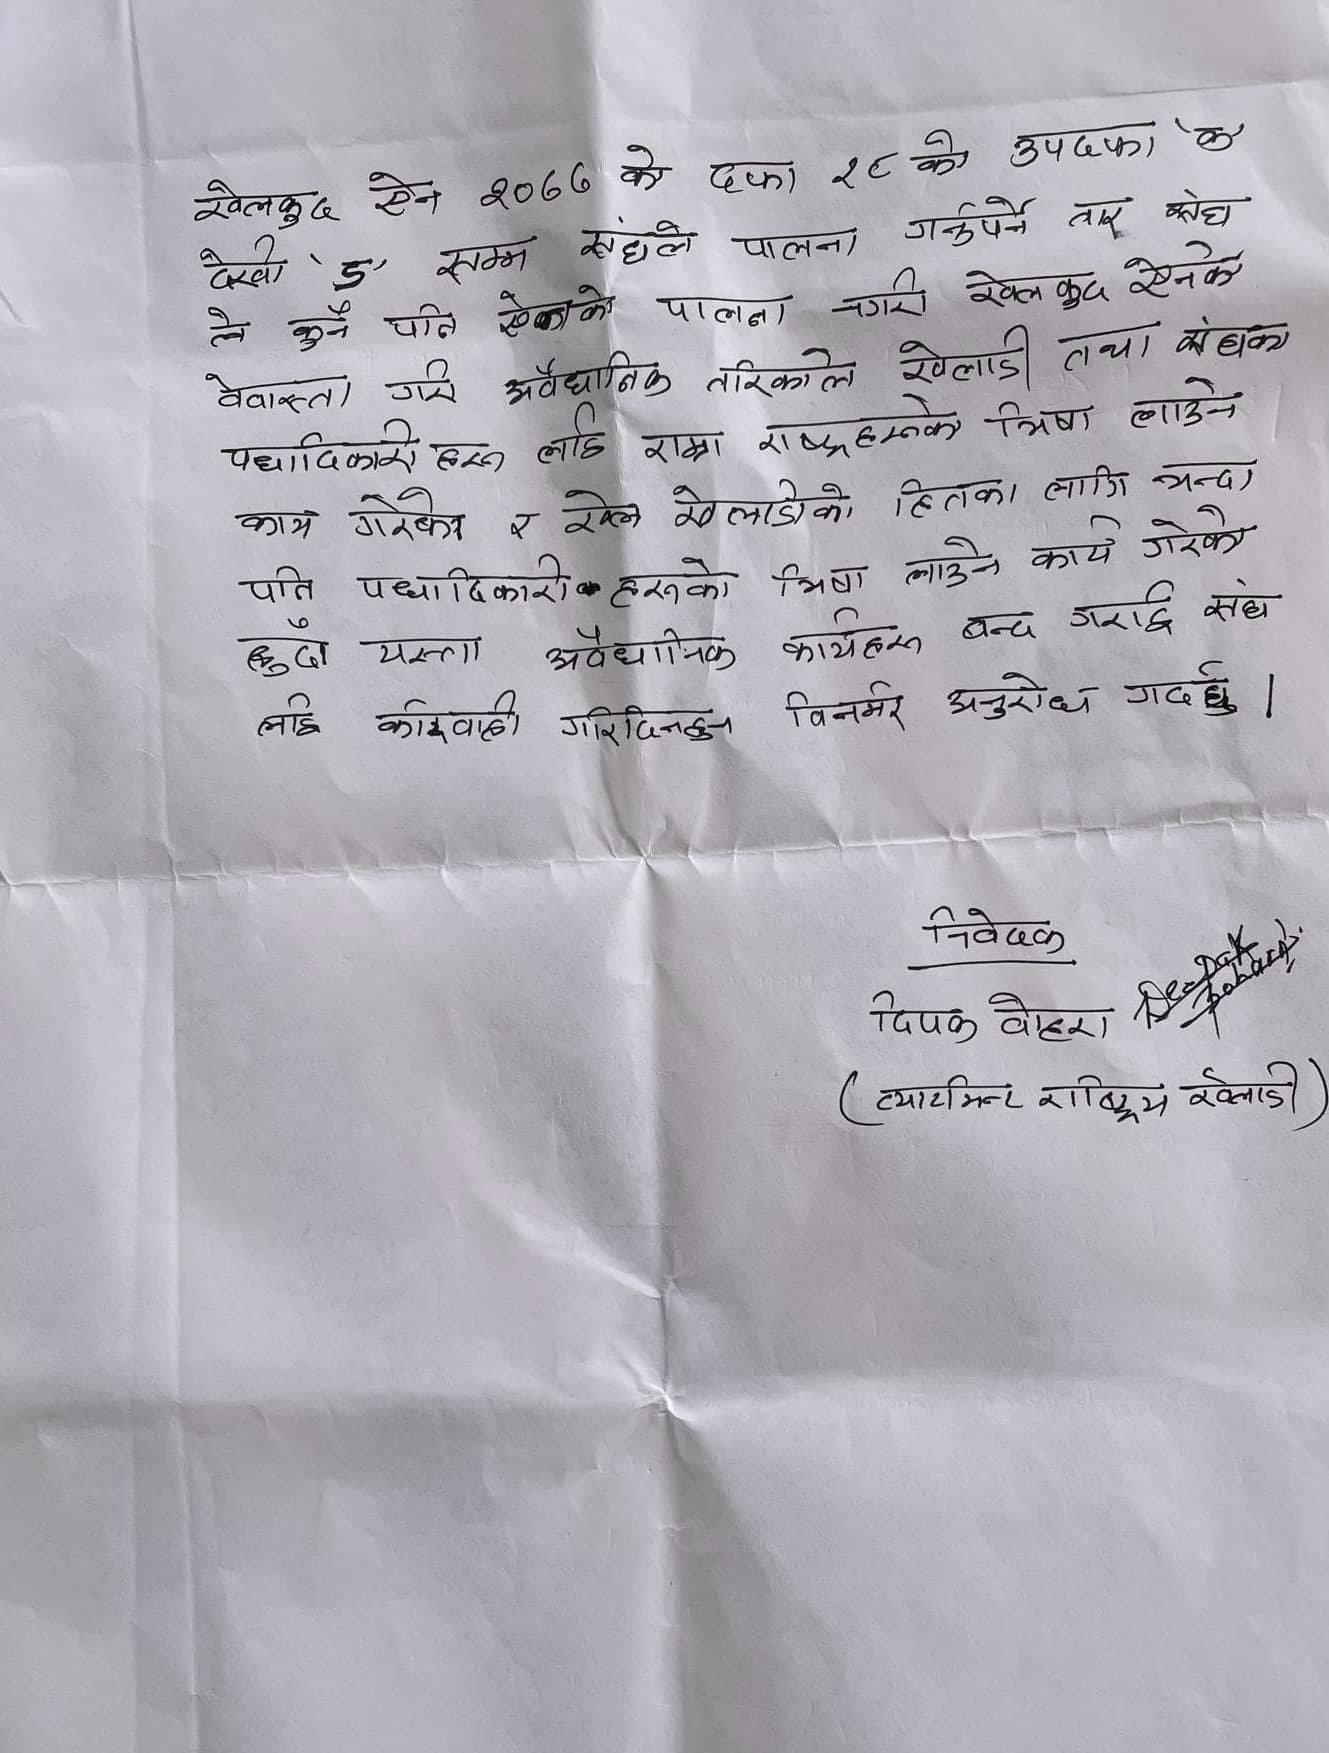 खेलकुद ऐन २०७७ को दफा २८ को उपदफा 'क'
देखी 'ड' सम्म संघले पालना गर्नुपर्ने तर संघ
ले कुनै पनि ऐनको पालना नगरी खेलकुद ऐनको
वेवास्ता गरी अवैधानिक तरिकाले खेलाडी तथा संघका
पधादिकारी हरू लाई राम्रा राष्ट्रहरूको भिषा लाउने
काम गरेको र खेल खेलाडीको हितका लागि भन्दा
पनि पधादिकारी हरूको भिषा लाउने कार्य गरेको
हुँदा यस्ता अवैधानिक कार्यहरू बन्द गराई संघ
लाई कारवाही गरिदिनहुन विनर्म अनुरोध गर्दछु ।
निवेदक
दिपक वोहरा Deepak Bohara
(व्याटमिन्ट राष्ट्रिय खेलाडी)